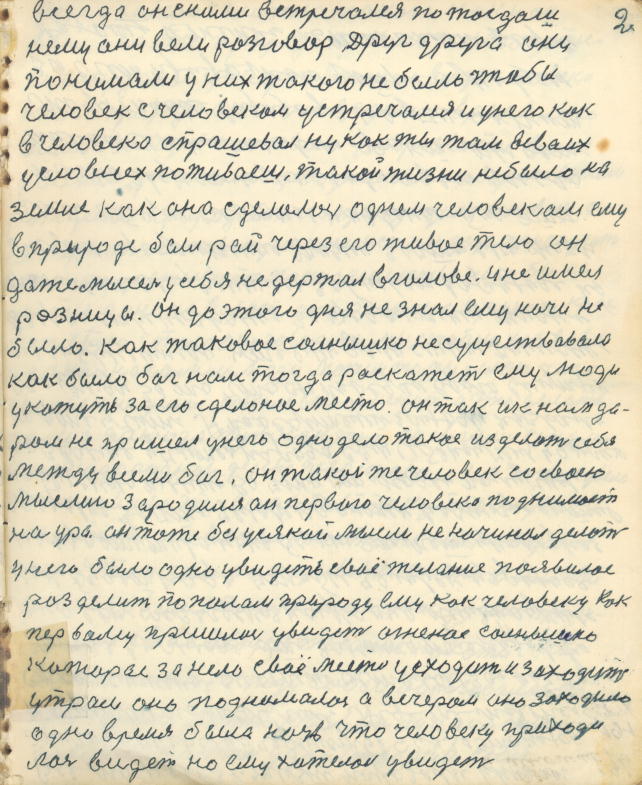 2
всегда он с ними встречался по тогдаш
нему они вели розговор Друг друга они
понимали у них такого не было чтобы
человек с человеком устречался и у него как
в человека спрашевал ну как ты там в своих
условиех поживаеш, такой жизни небыло на
земле как она сделалоя однем человекам ему
в природе был рай через его живое тело он
даже мысел у себя не держал в голове. и не имел
розницы. он до этого дня не знал ему ночи не
было. как таковое солнышко несуществавало
как было бог нам тогда раскажет ему люди
укажуть за его сделоное место. он так ик нам да-
ром не пришел унего одно дело такое изделат себя
между всеми бог. он такой же человек со своею
мыслию зародился он первого человека поднимает
на ура. он тоже без усякой мысли не начинал делат
у него было одно увидеть своё желание появилос
розделит пополам природу ему как человеку как
первому пришлос увидет огненае солнышко
каторае за нело своё место усходит и заходить
утрам оно поднималоя а вечером оно заходило
одно время была ночь что человеку приходи
лоя видет но ему хотелоя увидет